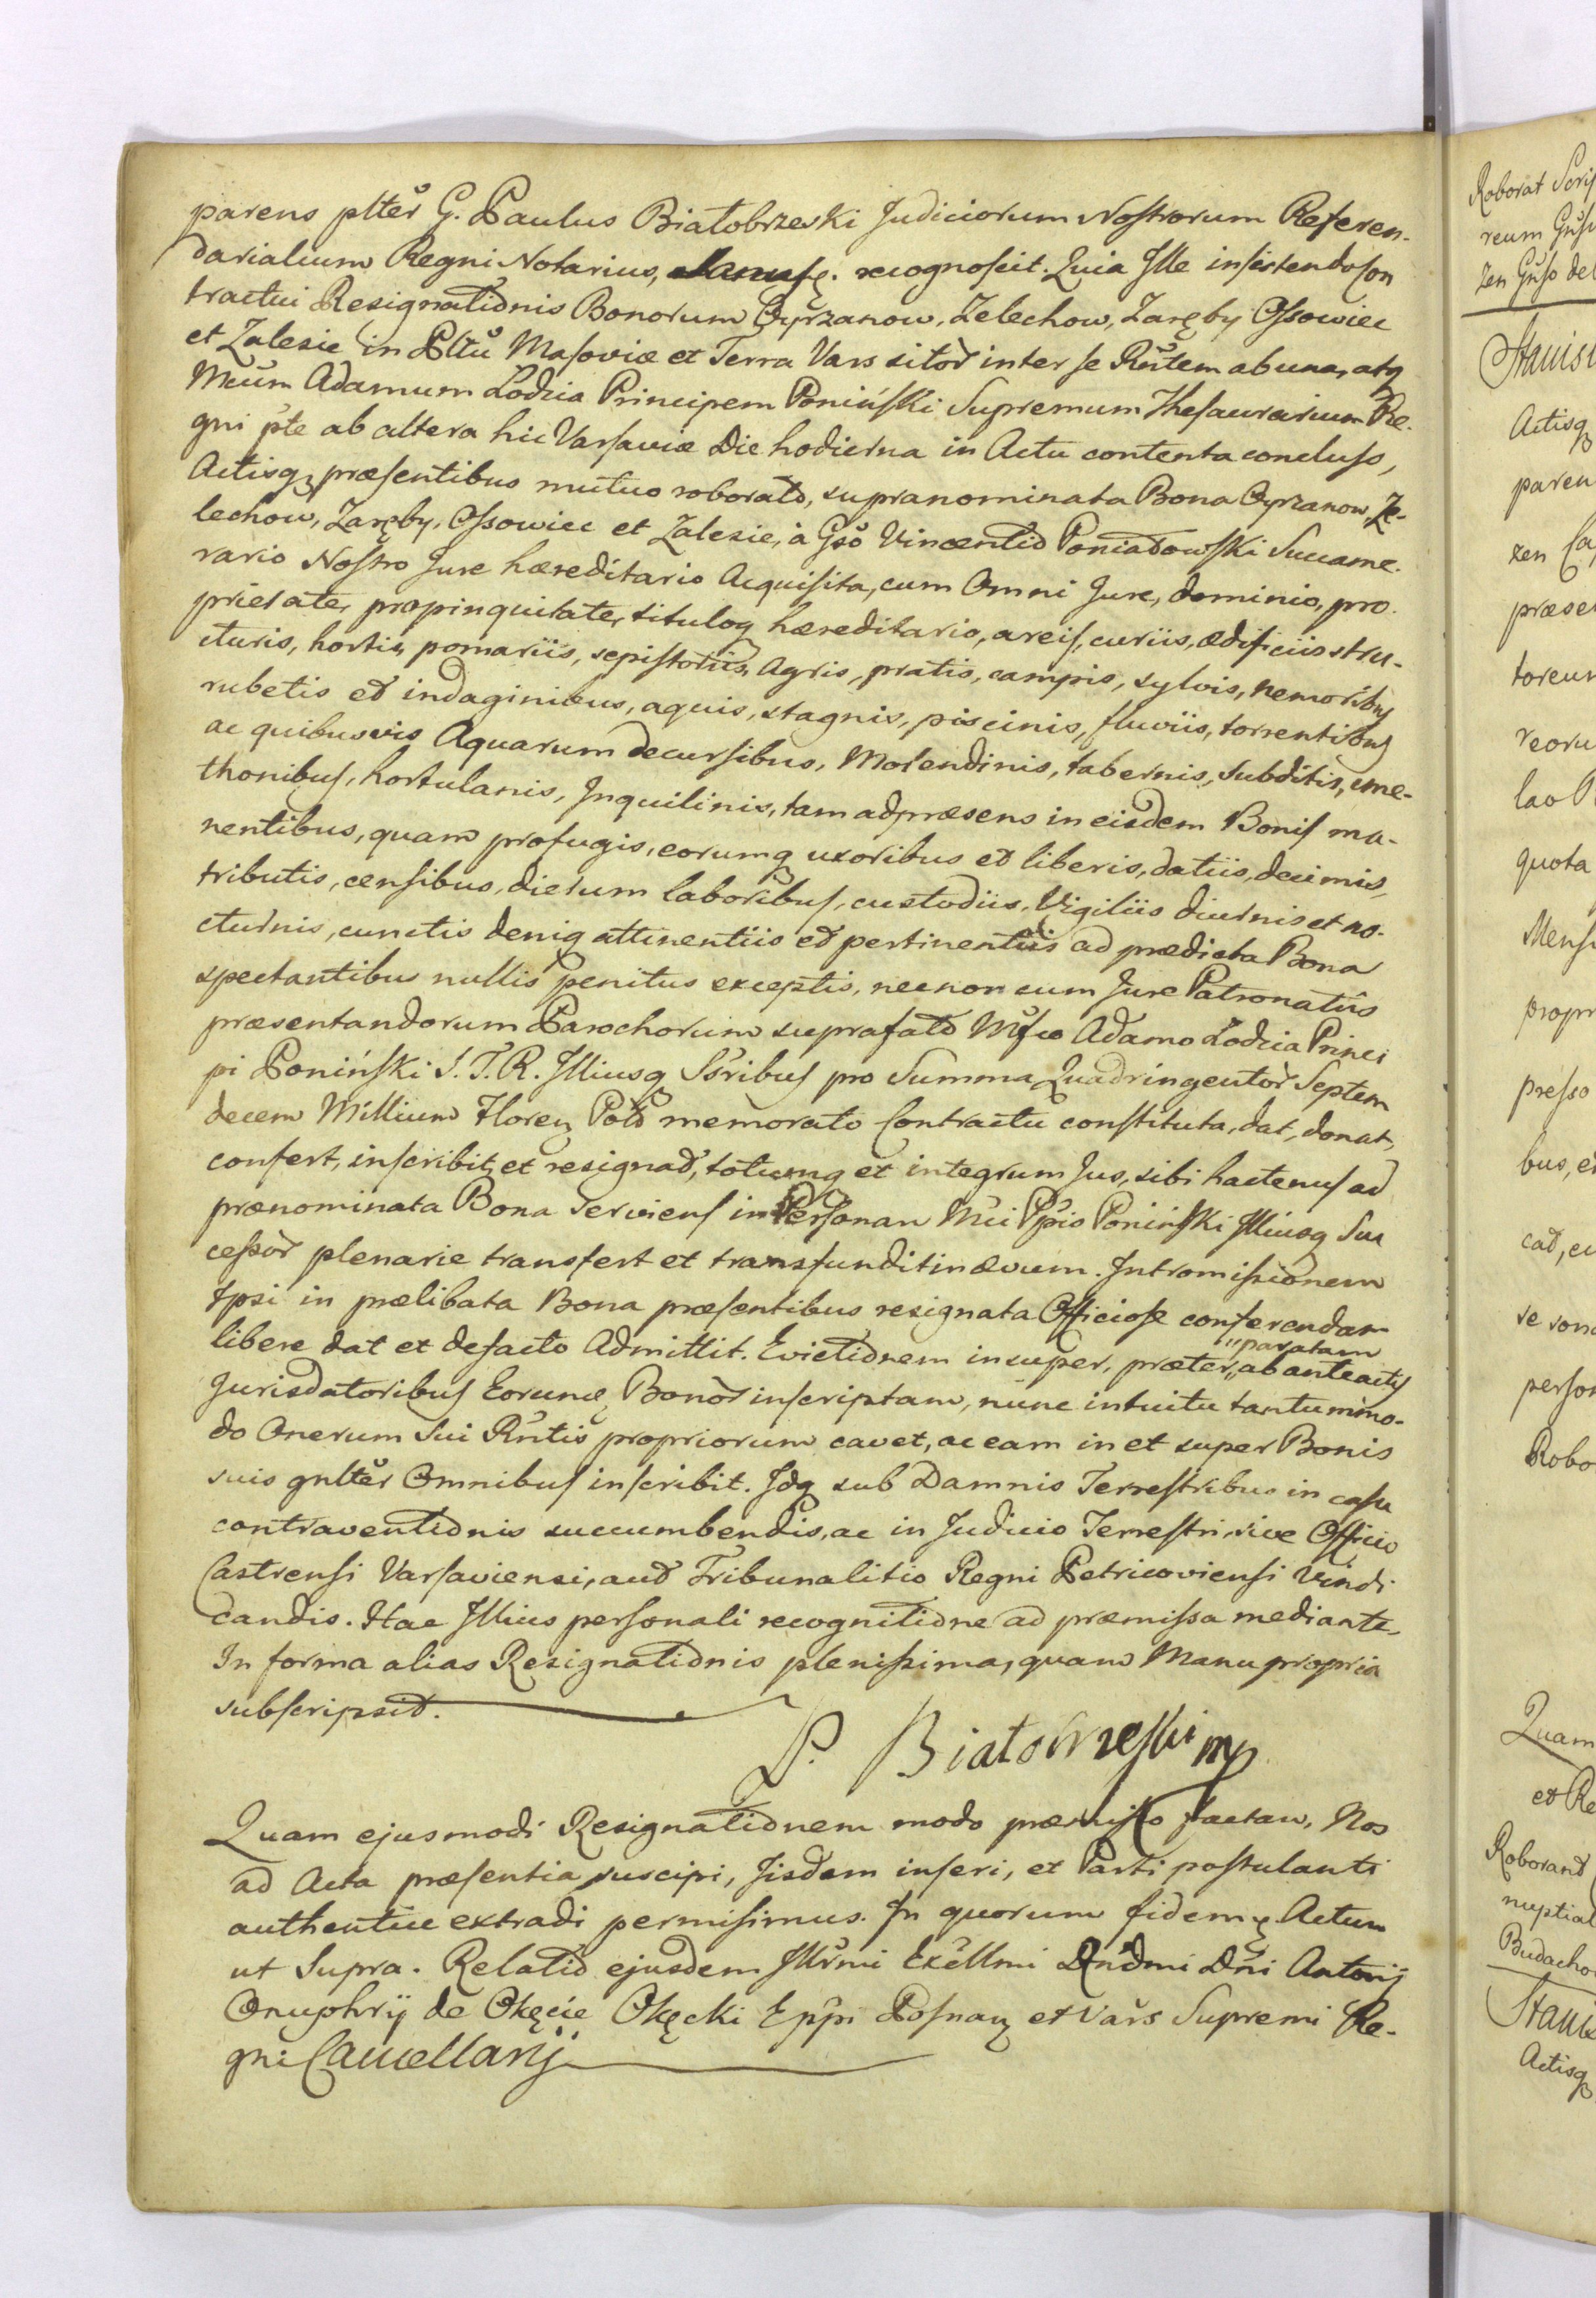 parens plter G. Paulus Białobrzeski Judiciorum Nostrorum Referen-
darialium Regni Notarius, recognoscit. Quia Ille insistendo Con
tractui Resignationis Bonorum Oyrzanow, Zelechow, Zaręby Ossowiec
et Zalesie in Pltu Masoviæ et Terra Vars sitor inter se Rntem ab una, atq
Mcum Adamum Lodzia Principem Poniński Supremum Thesaurarium Re-
gni pte ab altera hic Varsaviæ Die hodierna in Actu contenta concluso,
Actisq præsentibus mutuo roborato, supranominata Bona Oyrzanow, Ze-
lechow, Zaręby, Ossowiec et Zalesie, à Gso Vincentio Poniatowski Succame-
rario Nostro Jure hæreditario Acquisita, cum Omni Jure, dominio, pro-
prietate, propinquitate, tituloq hæreditario, areis, curiis, ædificiis stru-
cturis, hortis, pomariis, sepistoriis, Agris, pratis, campis, sylvis, nemoribus
rubetis et indaginibus, aquis, stagnis, piscinis, fluviis, torrentibus
ac quibusvis Aquarum decursibus, Molendinis, tabernis, subditis, cme-
thonibus, hortulanis, Inquilinis, tam ad præsens in eisdem Bonis ma-
nentibus, quam profugis, eorumq uxoribus et liberis, datiis, decimis,
tributis, censibus, dierum laboribus, custodiis, Vigiliis diurnis et no-
cturnis, cunctis deniq attinentiis et pertinentiis ad prædicta Bona
spectantibus nullis penitus exceptis, necnon cum Jure Patronatûs
præsentandorum Parochorum suprafato Mfco Adamo Lodzia Princi
pi Poniński S. T. R. Illiusq Ssribus pro Summa Quadringentor Septem
decem Millium Floren Pol memorato Contractu constituta, dat, donat,
confert, inscribit et resignat, totumq et integrum Jus, sibi hactenus ad
prænominata Bona serviens in Personam Mci Ppis Poniński Illiusq Suc
cessor plenarie transfert et transfundit in ævum. Intromissionem
Ipsi in prælibata Bona præsentibus resignata Officiose conferendam
libere dat et defacto Admittit. Evictionem insuper, præter „ab anteactis
„paratam
Jurisdatoribus Eorunde Bonor inscriptam, nunc intuitu tantummo-
do Onerum Sui Rntis propriorum cavet, ac eam in et super Bonis
suis gnlter Omnibus inscribit. Idq sub Damnis Terrestribus in casu
contraventionis succumbendis, ac in Judicio Terrestri, sive Officio
Castrensi Varsaviensi, aut Tribunalitio Regni Petricoviensi Vindi
candis. Hac Illius personali recognitione ad præmissa mediante,
In forma alias Resignationis plenissima, quam Manu propria
subscripsit.
P. Białobrzeski mp
Quam ejusmodi Resignationem modo præmisso factam, Nos
ad Acta præsentia suscipi, Iisdem inseri, et Parti postulanti
authentice extradi permisimus. In quorum fidem Actum
ut Supra. Relatio ejusdem Illrmi Excllmi Dndmi Dni Antonij
Onuphrij de Okęcie Okęcki Eppi Posnan et Vars Supremi Re-
gni Cancellarij
Roborat
reum
zen
Stanis
Actisq
paren
zen Ca
præse
toreu
reoru
lao
quota
Mensi
propr
presso
bus, e
cat, cu
se
person
Robo
Quam
et Re
Roborant
nuptial
Budacho
Stanis
Actisq